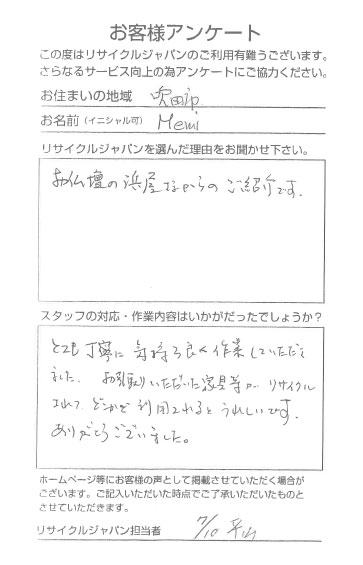 お客様アンケート
この度はリサイクルジャパンのご利用有難うございます。
さらなるサービス向上の為アンケートにご協力ください。
お住まいの地域 吹田市
お名前(イニシャル可) Memi
リサイクルジャパンを選んだ理由をお聞かせ下さい。
お仏壇の浜屋さまからのご紹介です。
スタッフの対応・作業内容はいかがだったでしょうか?
とても丁寧に気持ち良く作業していただき
ました。お引取りいただいた家具等が、リサイクル
されて、どこかで利用されるとうれしいです。
ありがとうございました。
ホームページ等にお客様の声として掲載させていただく場合が
ございます。ご記入いただいた時点でご了承いただいたものと
させていただきます。
リサイクルジャパン担当者 7/10 平山